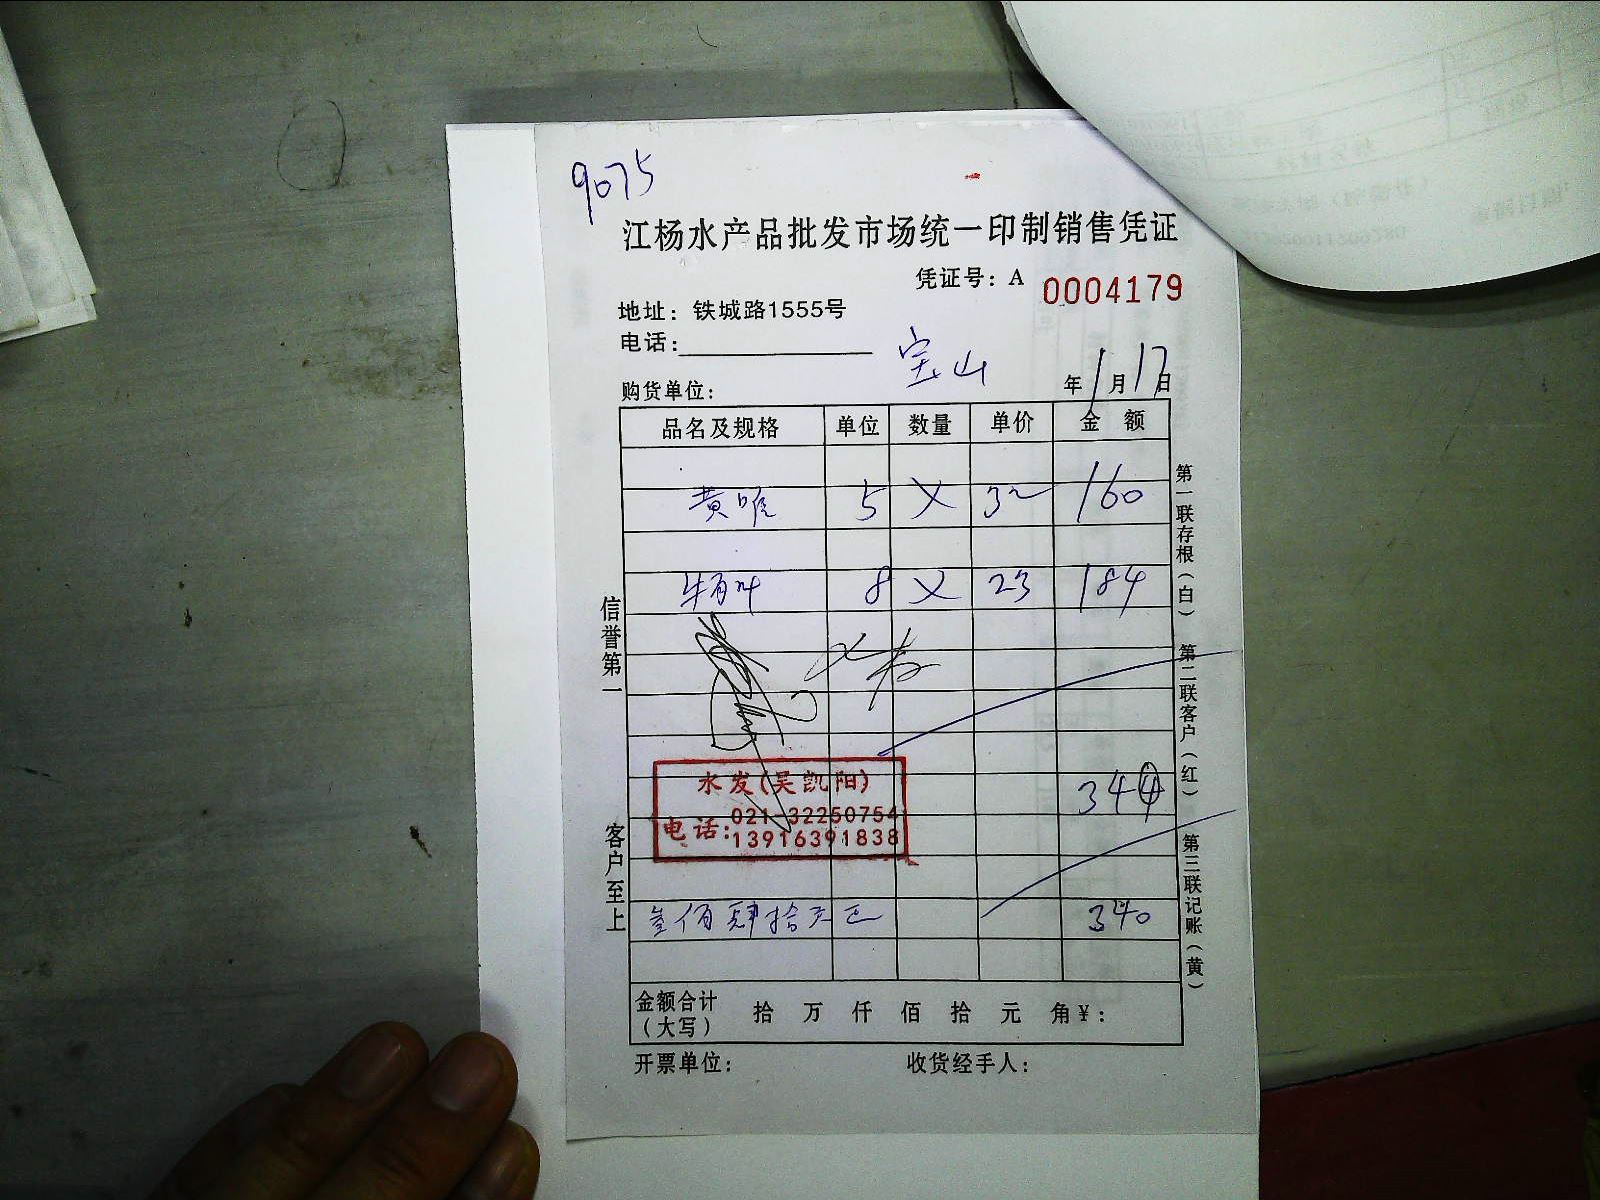 9075
江杨水产品批发市场统一印制销售凭证
凭证号：A 0004179
地址：铁城路1555号
电话：
宝山
购货单位：
年1月17日
品名及规格 单位 数量 单价 金额
黄 5 × 32 160
8 × 23 184
水发(吴凯阳)
电话：021-32250754
13916391838
344
叁佰肆拾元正 340
金额合计（大写） 拾 万 仟 佰 拾 元 角￥：
开票单位： 收货经手人：
信誉第一 客户至上
第一联存根(白) 第二联客户(红) 第三联记账(黄)